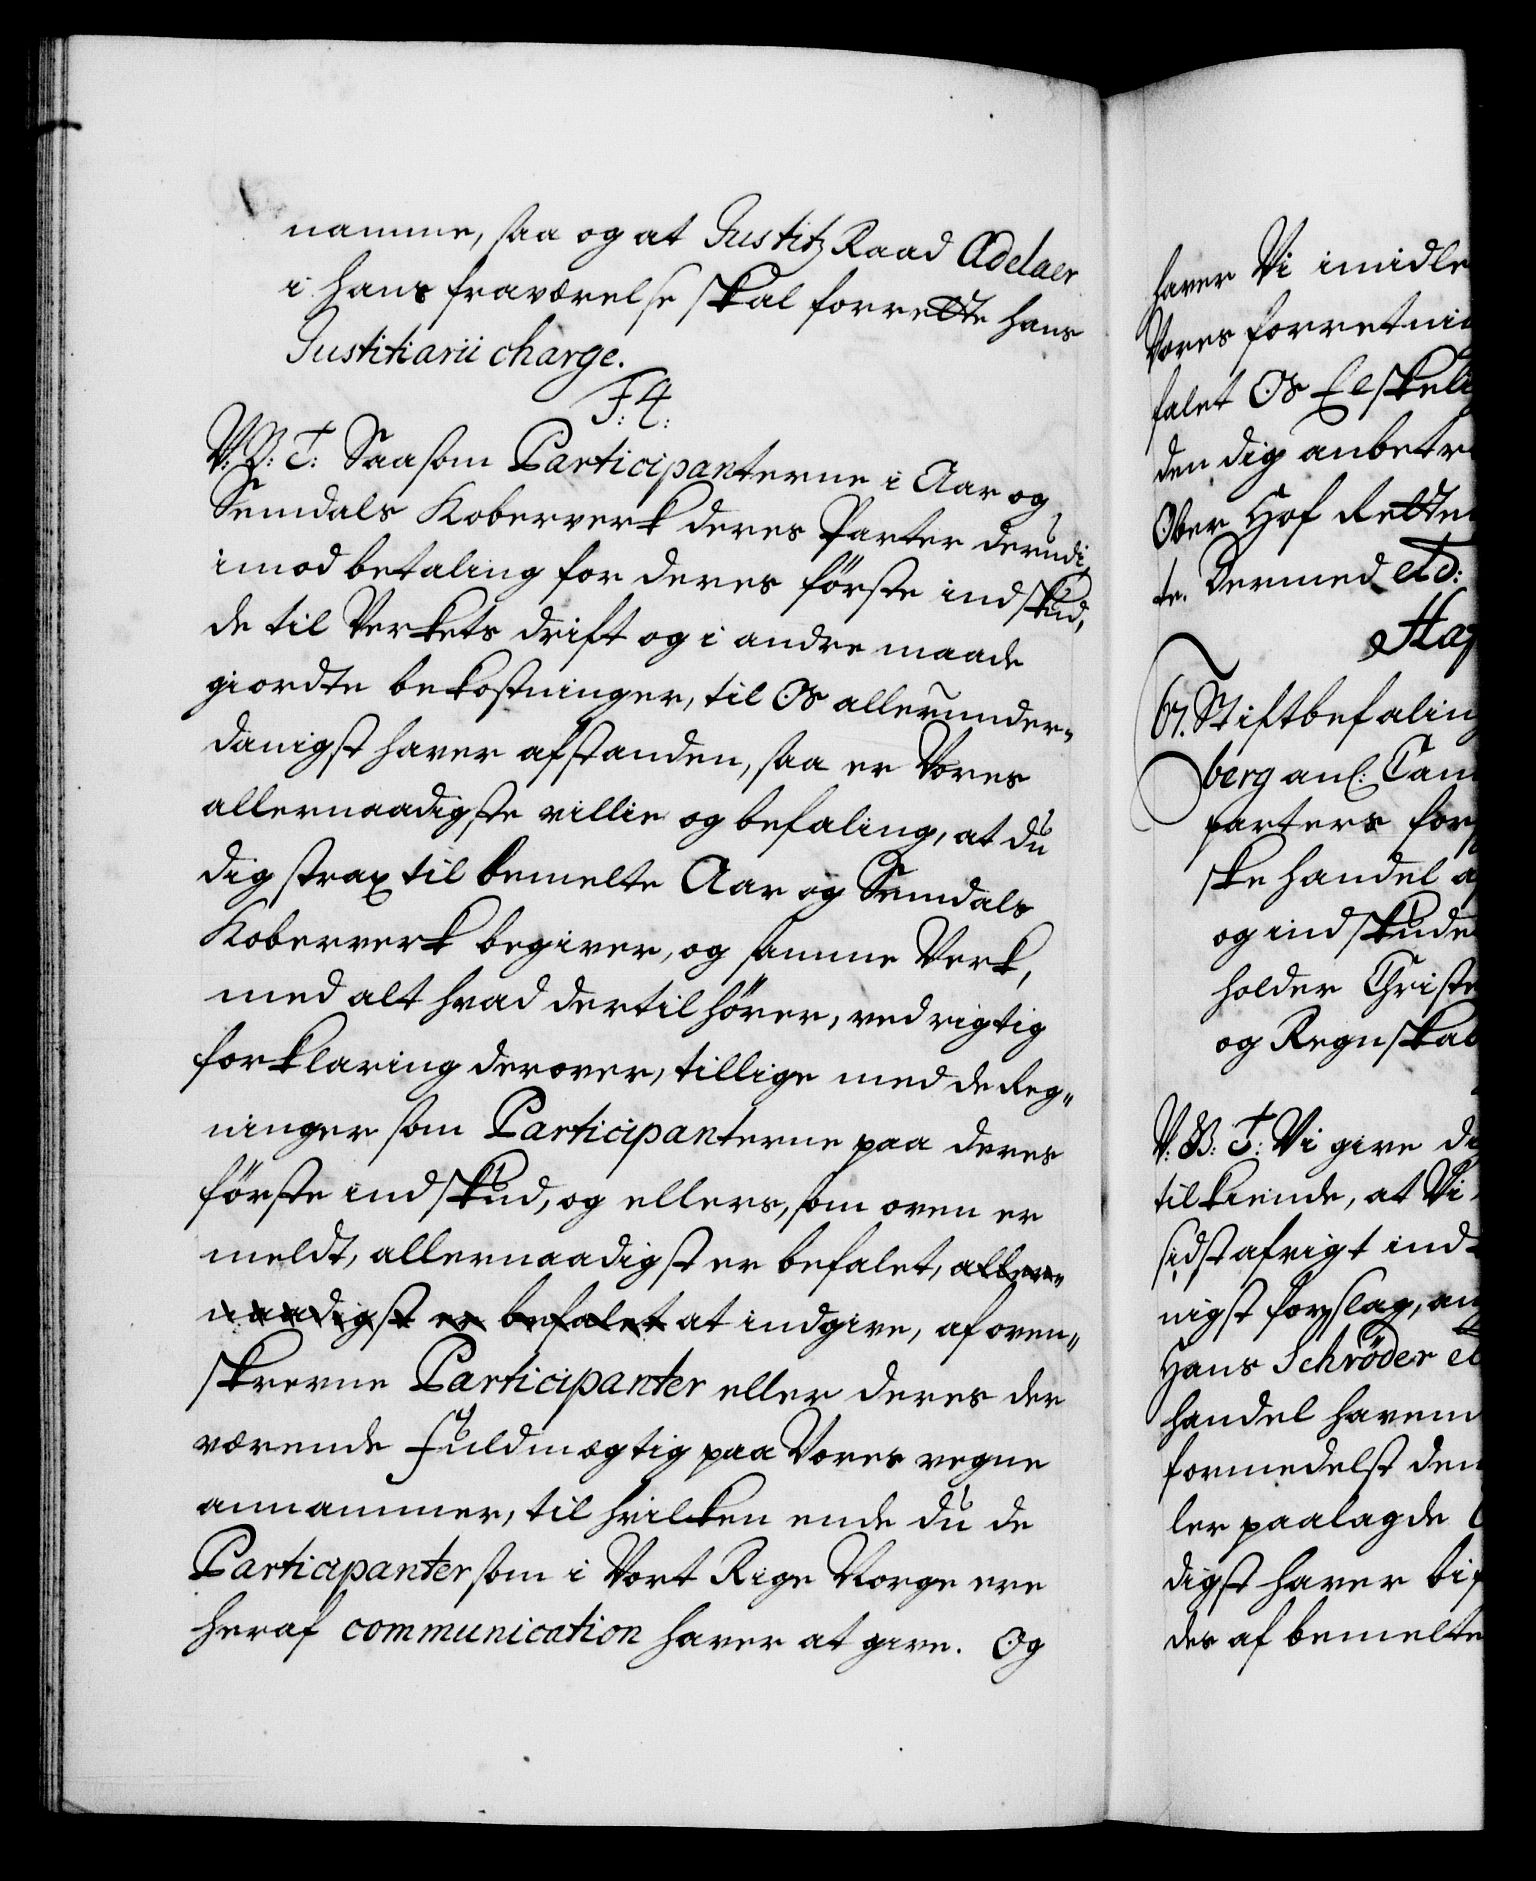 namme, saa og at Justitz Raad Adelaer
i hans fraværelse skal forrette hans
Justitiarii charge.
F: 4:
V: G: T: Saasom Participanterne i Aar og
Semdals Koberverk deres Parter derudi,
imod betaling for deres första indskud,
de til Verkets drift og i andre maade
giordte bekostninger, til Os allerunder-
danigst haver afstanden, saa er Vores
allernaadigste villie og befaling, at du
dig strax til bemelte Aar og Semdals
Koberverk begiver, og samme Verk,
med alt hvad dertil hörer, ved rigtig
forklaring derover, tillige med de Reg-
ninger som Participanterne paa deres
förste indskud, og ellers, som oven er
meldt, allernaadigst er befalet, aller-
naadigst er befalet at indgive, af oven-
skrevne Participanter eller deres der
værende fuldmægtig paa Vores vegne
annammer, til hvilken ende du de
Participanter som i Vort Rige Norge ere
heraf communication haver at give. Og
haver Vi imidle
Vores forretnin
falet Os Elskeli
den dig anbetr
Ober Hof Rette
te. Dermed etc:
Haf
61. Stiftbefaling
berg anl: Tam
parters for
ske handel a
og indskude
holder Christe
og Regnskab
V: B: T: Vi give di
tilkiende, at Vi
sidst afvigt ind
nigst forslag, an
Hans Schröder et
handel havem
formedelst den
ler paalagde
digst haver bif
des af bemelte